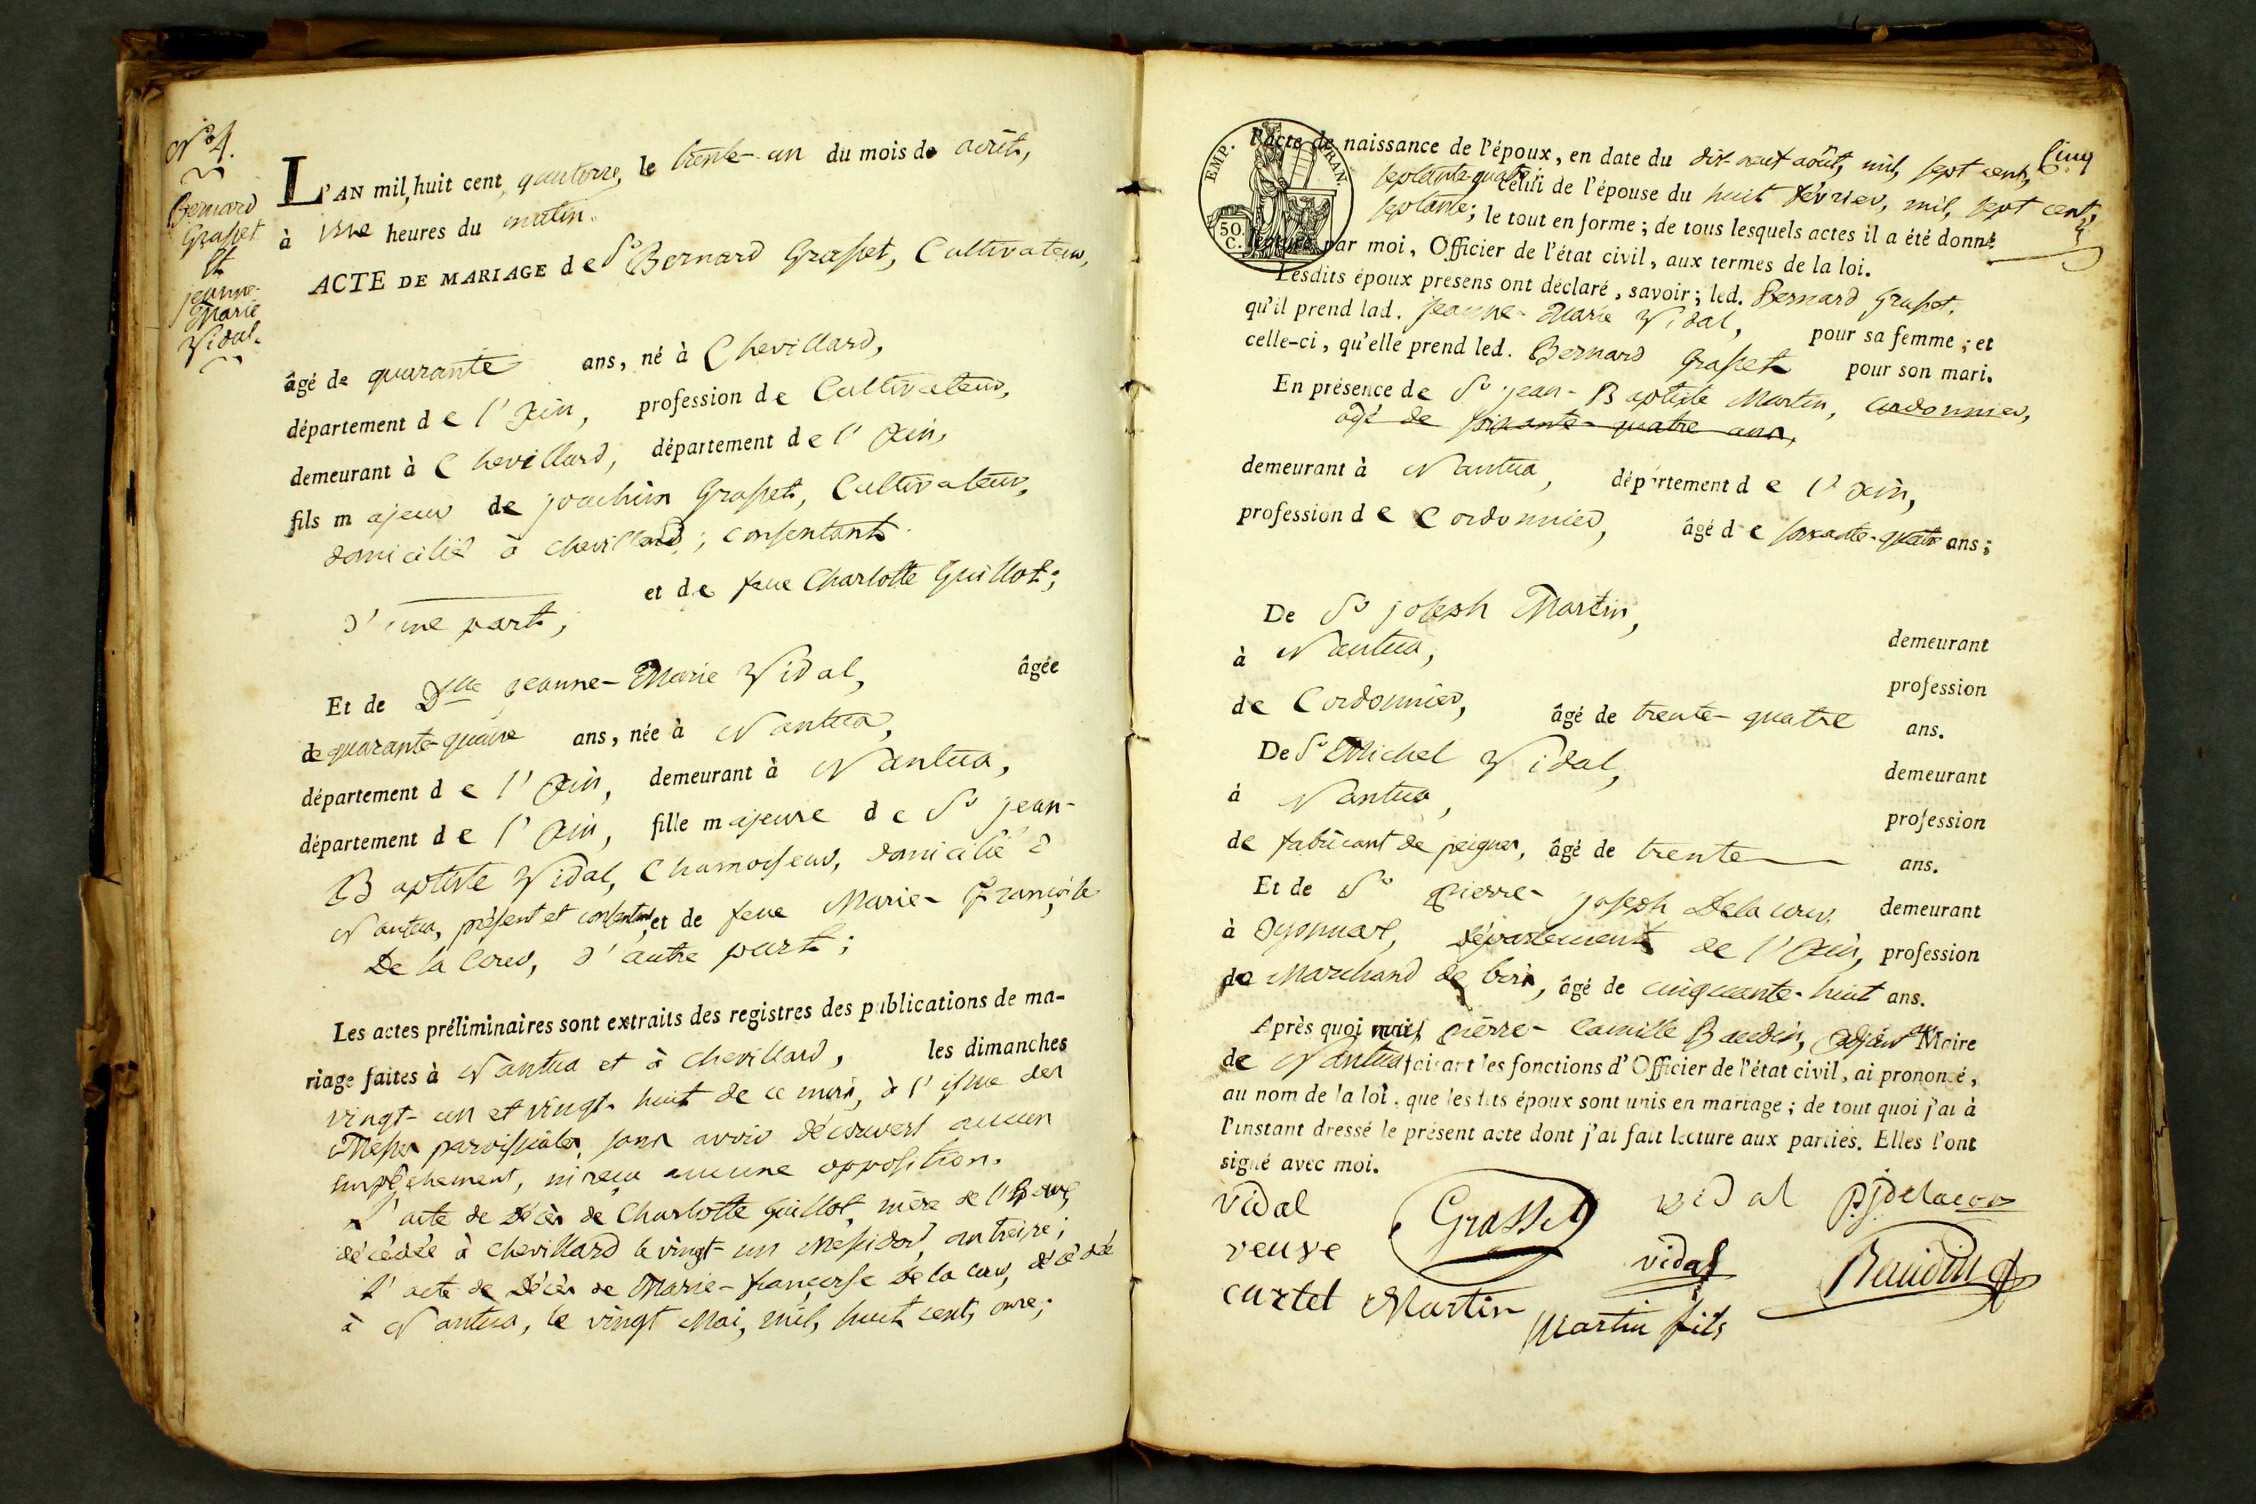 N.º 4.
Bernard
Grasset
Et
jeanne-
Marie
Vidal.
L'AN mil, huit cent, quatorze, le trente-un du mois de août,
à onze heures du matin.
ACTE DE MARIAGE de Sr Bernard Grasset, Cultivateur,
âgé de quarante ans, né à Chevillard,
département de l'Ain, profession de Cultivateur,
demeurant à Chevillard, département de l'Ain,
fils majeur de joachim Grasset, Cultivateur,
domicilié à chevillard; consentant
et de feue Charlotte Guillot;
d'une part;
Et de Dlle jeanne-Marie Vidal, âgée
de quarante-quatre ans, née à Nantua,
département de l'Ain, demeurant à Nantua,
département de l'Ain, fille majeure de Sr jean-
Baptiste Vidal, Chamoiseur, domicilié à
Nantua, présent et consentant, et de feue Marie-Françoise
De la Cour, d'autre part;
Les actes préliminaires sont extraits des registres des publications de ma-
riage faites à Nantua et à chevillard, les dimanches
vingt-un et vingt-huit de ce mois, à l'issue des
Messes paroissiales, sans avoir découvert aucun
empêchement, ni reçu aucune opposition.
L'acte de Décès de Charlotte Guillot, mère de l'Epoux,
décédée à chevillard le vingt-un Messidor, an treize;
L'acte de Décès de Marie-françoise De la cour, décédée
à Nantua, le vingt Mai, mil, huit cent, onze;
Cinq
EMP. FRAN.
50.
C.
l'acte de naissance de l'époux, en date du dix-neuf août, mil, sept cent,
septante-quatre; celui de l'épouse du huit février, mil, sept cent,
septante; le tout en forme; de tous lesquels actes il a été donné
lecture par moi, Officier de l'état civil, aux termes de la loi.
Lesdits époux présens ont déclaré, savoir; led. Bernard Grasset.
qu'il prend lad. jeanne-Marie Vidal, pour sa femme; et
celle-ci, qu'elle prend led. Bernard Grasset pour son mari.
En présence de Sr jean-Baptiste Martin, cordonnier,
agé de soixante-quatre ans,
demeurant à Nantua, département de l'Ain,
profession de Cordonnier, âgé de soixante-quatre ans;
De Sr joseph Martin, demeurant
à Nantua, profession
de Cordonnier, âgé de trente-quatre ans.
De Sr Michel Vidal, demeurant
à Nantua, profession
de fabricant de peignes, âgé de trente ans.
Et de Sr pierre-joseph Delacour demeurant
à Oyonnax, département de l'Ain, profession
de Marchand de bois, âgé de cinquante-huit ans.
Après quoi moi, pierre-Camille Baudin, Adjoint au Maire
de Nantua faisant les fonctions d'Officier de l'état civil, ai prononcé,
au nom de la loi, que lesdits époux sont unis en mariage; de tout quoi j'ai à
l'instant dressé le présent acte dont j'ai fait lecture aux parties. Elles l'ont
signé avec moi.
vidal Grasset vidal P. j. delacour
veuve vidal Baudin
cartet Martin
Martin fils